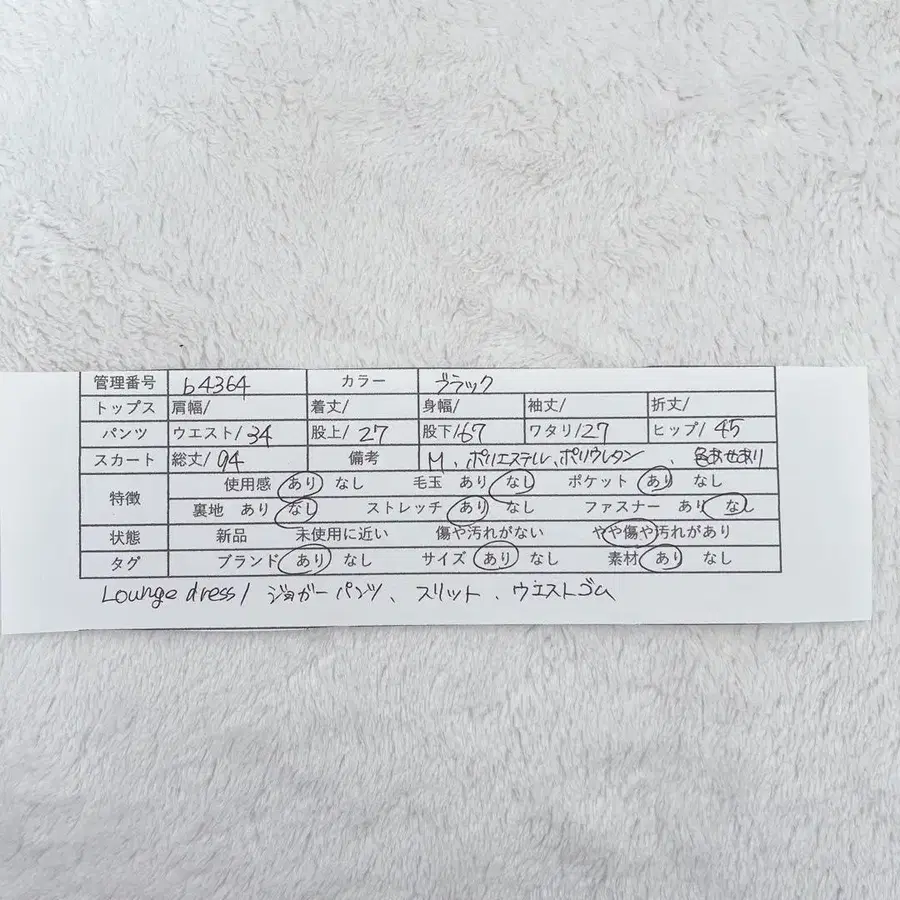 管理番号 b4364 カラー ブラック
トップス 肩幅/ 着丈/ 身幅/ 袖丈/ 折丈/
パンツ ウエスト/34 股上/27 股下/67 ワタリ/27 ヒップ/45
スカート 総丈/94 備考 M、ポリエステル、ポリウレタン、色あせあり
特徴 使用感 あり なし 毛玉 あり なし ポケット あり なし
裏地 あり なし ストレッチ あり なし ファスナー あり なし
状態 新品 未使用に近い 傷や汚れがない やや傷や汚れがあり
タグ ブランド あり なし サイズ あり なし 素材 あり なし
Lounge dress/ ジョガーパンツ、スリット、ウエストゴム